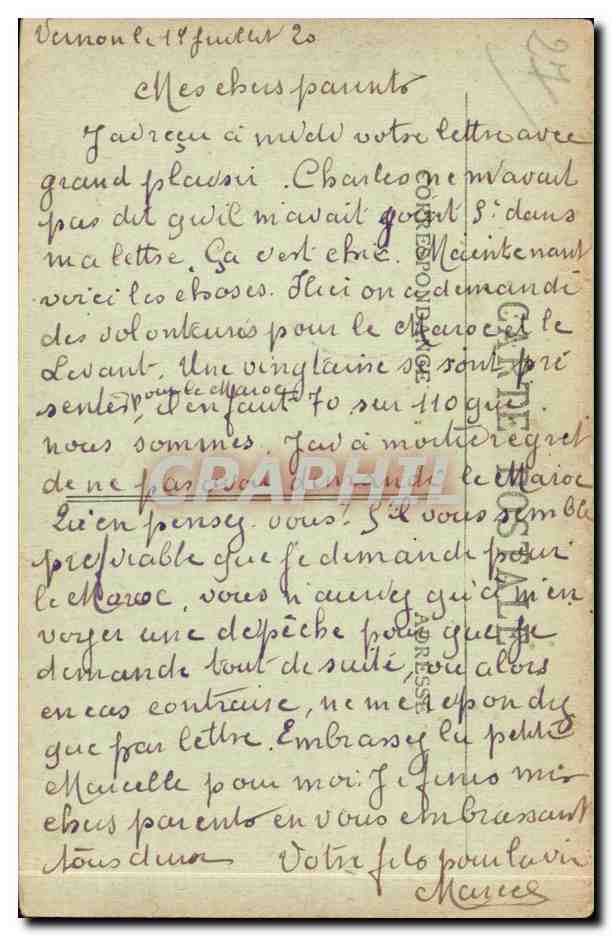 Vernon le 14 Juillet 20
27
Mes chers parents
J'ai reçu à midi votre lettre avec
grand plaisir. Charles ne m'avait
pas dit qu'il m'avait 5f dans
ma lettre. Ça c'est chic. Maintenant
voici les choses. Ici on a demandé
des volonteures pour le Maroc et le
Levant. Une vingtaine se sont pré
sentés pour le Maroc, il en faut 70 sur 110 que
nous sommes. J'ai à moitié regret
de ne pas avoir demandé le Maroc
Qu'en pensez vous! S'il vous semble
preferable que je demande pour
le Maroc, vous n'aurez qu'à m'en
voyer une depêche pour que je
demande tout de suite, ou alors
en cas contraire, ne me repondez
que par lettre. Embrassez la petite
Marcelle pour moi. Je finis mes
chers parents en vous embrassant
tous deux Votre fils pour la vie
Marcel
CARTE POSTALE
CORRESPONDANCE
ADRESSE
CRAPHTL